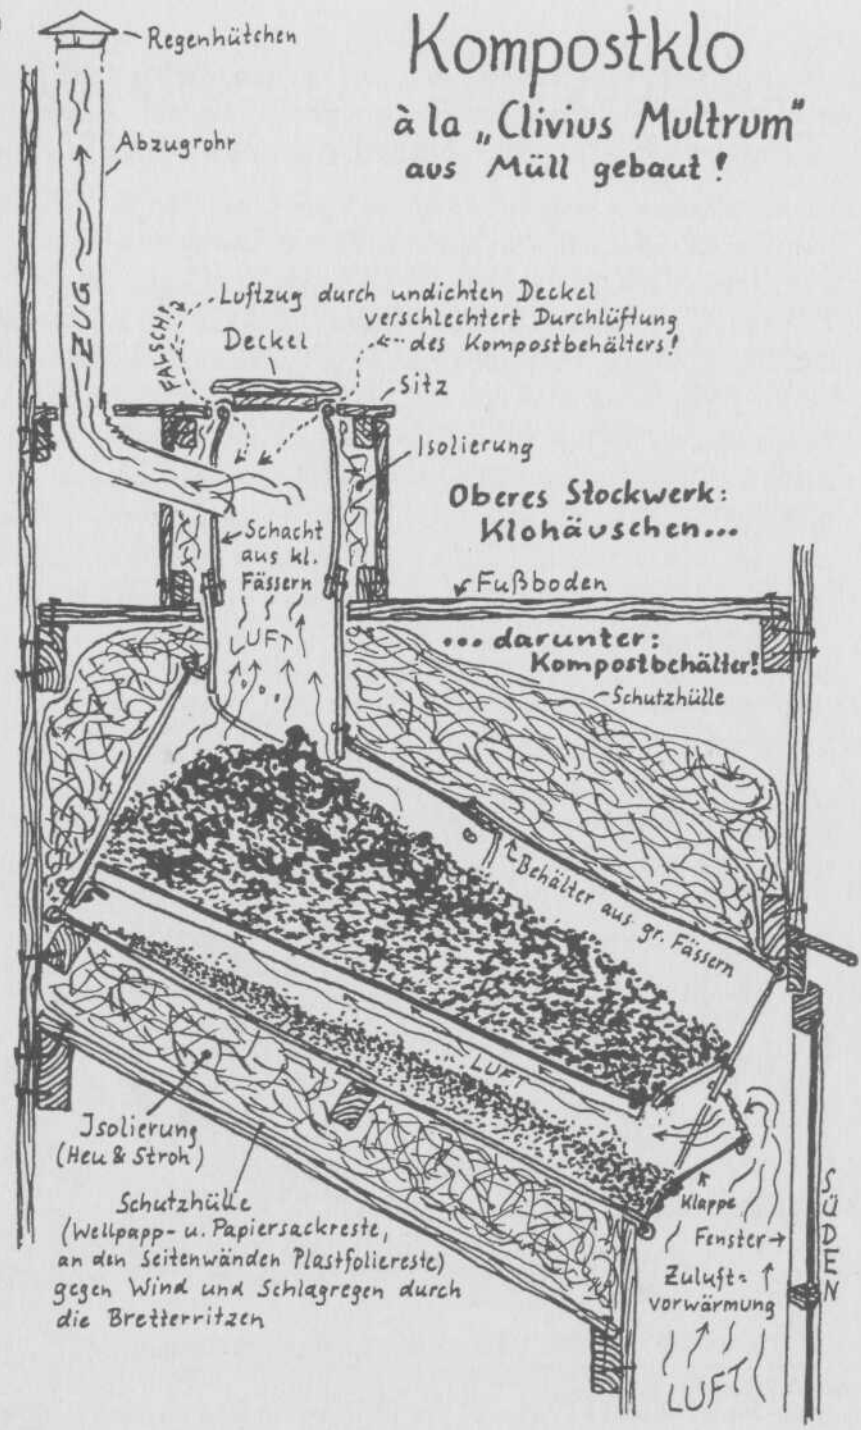 Kompostklo
à la „Clivius Multrum"
aus Müll gebaut!
Regenhütchen
Abzugrohr
ZUG
FALSCH!
Luftzug durch undichten Deckel
verschlechtert Durchlüftung
des Kompostbehälters!
Deckel
Sitz
Isolierung
Oberes Stockwerk:
Klohäuschen...
Schacht
aus kl.
Fässern
Fußboden
LUFT
... darunter:
Kompostbehälter!
Schutzhülle
Behälter aus gr. Fässern
LUFT
Isolierung
(Heu & Stroh)
Schutzhülle
(Wellpapp- u. Papiersackreste,
an den Seitenwänden Plastfoliereste)
gegen Wind und Schlagregen durch
die Bretterritzen
Klappe
Fenster
SÜDEN
Zuluft=
vorwärmung
LUFT